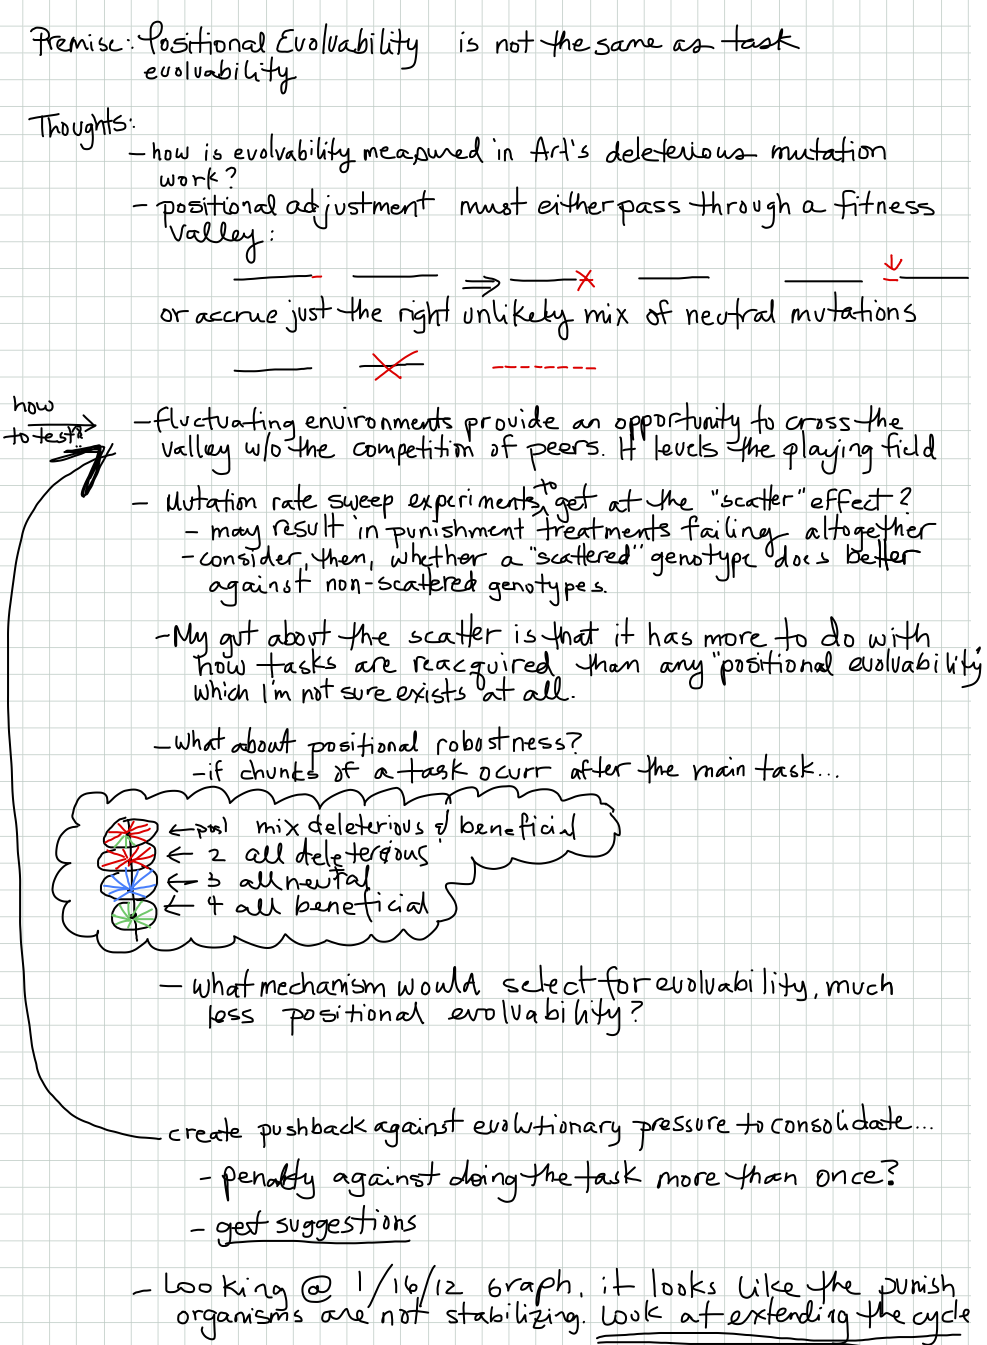 Premise: Positional Evolvability is not the same as task
evolvability
Thoughts:
- how is evolvability measured in Art's deleterious mutation
work?
- positional adjustment must either pass through a fitness
valley:
or accrue just the right unlikely mix of neutral mutations
how
to test?
- fluctuating environments provide an opportunity to cross the
valley w/o the competition of peers. It levels the playing field
- Mutation rate sweep experiments, to get at the "scatter" effect?
- may result in punishment treatments failing altogether
- consider, then, whether a "scattered" genotype does better
against non-scattered genotypes.
- My gut about the scatter is that it has more to do with
how tasks are reacquired than any "positional evolvability"
which I'm not sure exists at all.
- What about positional robostness?
- if chunks of a task ocurr after the main task...
← pos 1 mix deleterious & beneficial
← 2 all deleterious
← 3 all neutal
← 4 all beneficial
- what mechanism would select for evolvability, much
less positional evolvability?
create pushback against evolutionary pressure to consolidate...
- penalty against doing the task more than once?
- get suggestions
- Looking @ 1/16/12 Graph, it looks like the punish
organisms are not stabilizing. Look at extending the cycle